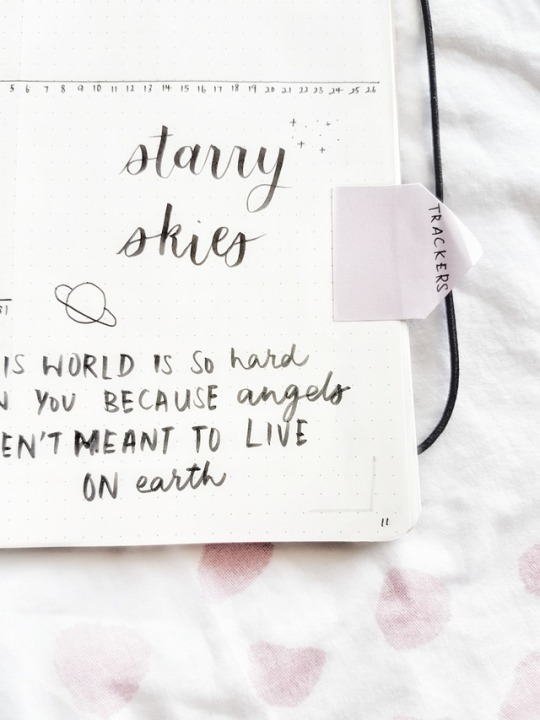 5 6 7 8 9 10 11 12 13 14 15 16 17 18 19 20 21 22 23 24 25 26
starry
skies
TRACKERS
31
IS WORLD IS SO hard
N YOU BECAUSE angels
EN'T MEANT TO LIVE
ON earth
11